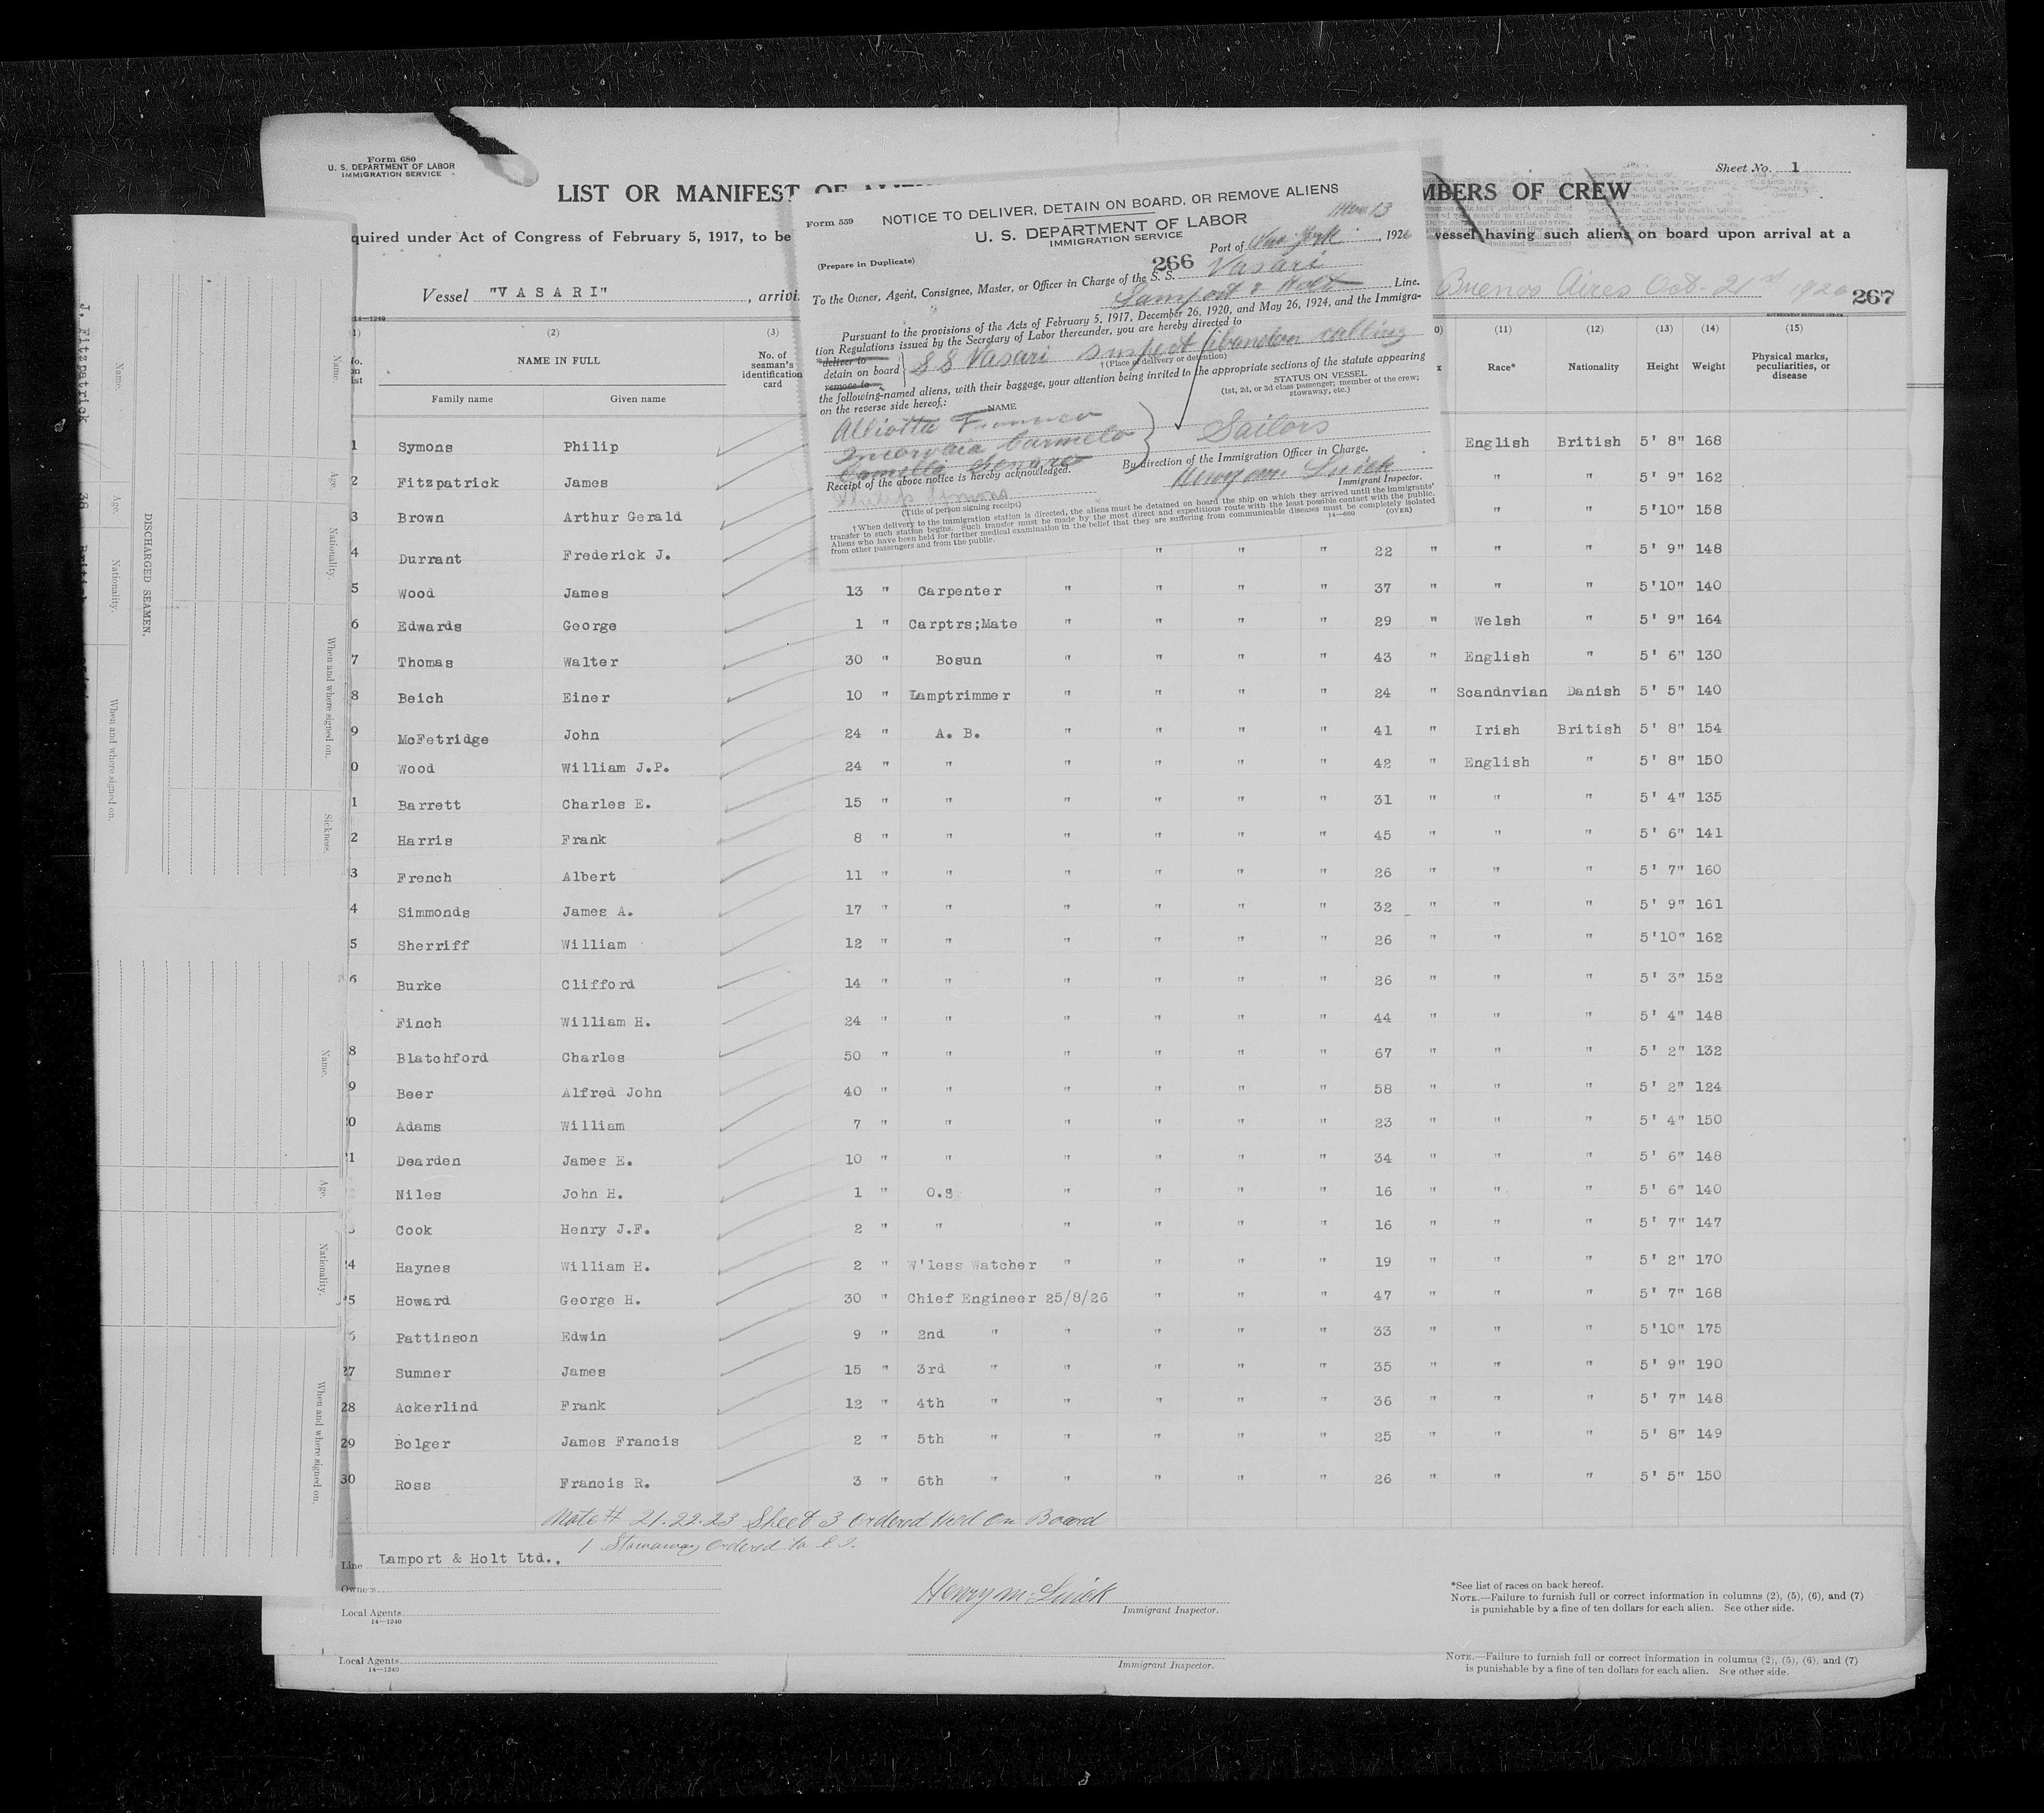 Form 680
U. S. DEPARTMENT OF LABOR
IMMIGRATION SERVICE
Sheet No. 1
LIST OR MANIFEST OF ALIEN
MBERS OF CREW
quired under Act of Congress of February 5, 1917, to be
vessel having such aliens on board upon arrival at a
Vessel "VASARI", arrivi
Buenos Aires Oct. 21st 1926
267
Form 559
NOTICE TO DELIVER, DETAIN ON BOARD, OR REMOVE ALIENS
U. S. DEPARTMENT OF LABOR
IMMIGRATION SERVICE
Nov. 13
(Prepare in Duplicate)
Port of New York, 1926
266
To the Owner, Agent, Consignee, Master, or Officer in Charge of the S. S. Vasari
Lamport & Holt Line.
Pursuant to the provisions of the Acts of February 5, 1917, December 26, 1920, and May 26, 1924, and the Immigra-
tion Regulations issued by the Secretary of Labor thereunder, you are hereby directed to
*deliver to
detain on board
remove to
S S Vasari suspect abandon calling
†(Place of delivery or detention)
the following-named aliens, with their baggage, your attention being invited to the appropriate sections of the statute appearing
on the reverse side hereof,:
NAME
STATUS ON VESSEL
(1st, 2d, or 3d class passenger; member of the crew;
stowaway, etc.)
Carmelo
Sailors
By direction of the Immigration Officer in Charge.
Receipt of the above notice is hereby acknowledged.
Henry M. Quick
Immigrant Inspector.
Philip Simons
(Title of person signing receipt)
†When delivery to the immigration station is directed, the aliens must be detained on board the ship on which they arrived until the immigrants'
transfer to such station begins. Such transfer must be made by the most direct and expeditious route with the least possible contact with the public.
Aliens who have been held for further medical examination in the belief that they are suffering from communicable diseases must be completely isolated
from other passengers and from the public.
14—660
(OVER)
14—1240
(2) (3) (11) (12) (13) (14) (15)
NAME IN FULL
Family name Given name
No. of seaman's identification card
Race* Nationality Height Weight Physical marks, peculiarities, or disease
1 Symons Philip English British 5' 8" 168
2 Fitzpatrick James " " 5' 9" 162
3 Brown Arthur Gerald " " 5'10" 158
4 Durrant Frederick J. " " " 22 " " " 5' 9" 148
5 Wood James 13 " Carpenter " " " " 37 " " " 5'10" 140
6 Edwards George 1 " Carptrs;Mate " " " " 29 " Welsh " 5' 9" 164
7 Thomas Walter 30 " Bosun " " " " 43 " English " 5' 6" 130
8 Beich Einer 10 " Lamptrimmer " " " " 24 " Scandnvian Danish 5' 5" 140
9 McFetridge John 24 " A. B. " " " " 41 " Irish British 5' 8" 154
0 Wood William J.P. 24 " " " " " " 42 " English " 5' 8" 150
1 Barrett Charles E. 15 " " " " " " 31 " " " 5' 4" 135
2 Harris Frank 8 " " " " " " 45 " " " 5' 6" 141
3 French Albert 11 " " " " " " 26 " " " 5' 7" 160
4 Simmonds James A. 17 " " " " " " 32 " " " 5' 9" 161
5 Sherriff William 12 " " " " " " 26 " " " 5'10" 162
6 Burke Clifford 14 " " " " " " 26 " " " 5' 3" 152
Finch William H. 24 " " " " " " 44 " " " 5' 4" 148
8 Blatchford Charles 50 " " " " " " 67 " " " 5' 2" 132
9 Beer Alfred John 40 " " " " " " 58 " " " 5' 2" 124
20 Adams William 7 " " " " " " 23 " " " 5' 4" 150
1 Dearden James E. 10 " " " " " " 34 " " " 5' 6" 148
Niles John H. 1 " O.S " " " " 16 " " " 5' 6" 140
3 Cook Henry J.F. 2 " " " " " " 16 " " " 5' 7" 147
24 Haynes William H. 2 " W'less Watcher " " " " 19 " " " 5' 2" 170
25 Howard George H. 30 " Chief Engineer 25/8/26 " " " 47 " " " 5' 7" 168
6 Pattinson Edwin 9 " 2nd " " " " " 33 " " " 5'10" 175
27 Sumner James 15 " 3rd " " " " " 35 " " " 5' 9" 190
28 Ackerlind Frank 12 " 4th " " " " " 36 " " " 5' 7" 148
29 Bolger James Francis 2 " 5th " " " " " 25 " " " 5' 8" 149
30 Ross Francis R. 3 " 6th " " " " " 26 " " " 5' 5" 150
Note # 21.22.23 Sheet 3 Ordered Held On Board
1 Stowaway Ordered to E.I.
Line Lamport & Holt Ltd.,
Owners
Local Agents
14—1240
Henry M. Quick
Immigrant Inspector.
*See list of races on back hereof.
NOTE.—Failure to furnish full or correct information in columns (2), (5), (6), and (7)
is punishable by a fine of ten dollars for each alien. See other side.
Local Agents
14—1240
Immigrant Inspector.
NOTE.—Failure to furnish full or correct information in columns (2), (5), (6), and (7)
is punishable by a fine of ten dollars for each alien. See other side.
DISCHARGED SEAMEN.
Name. Age. Nationality. When and where signed on.
J. Fitzpatrick 38
Name. Age. Nationality. When and where signed on. Sickness.
Name. Age. Nationality. When and where signed on.